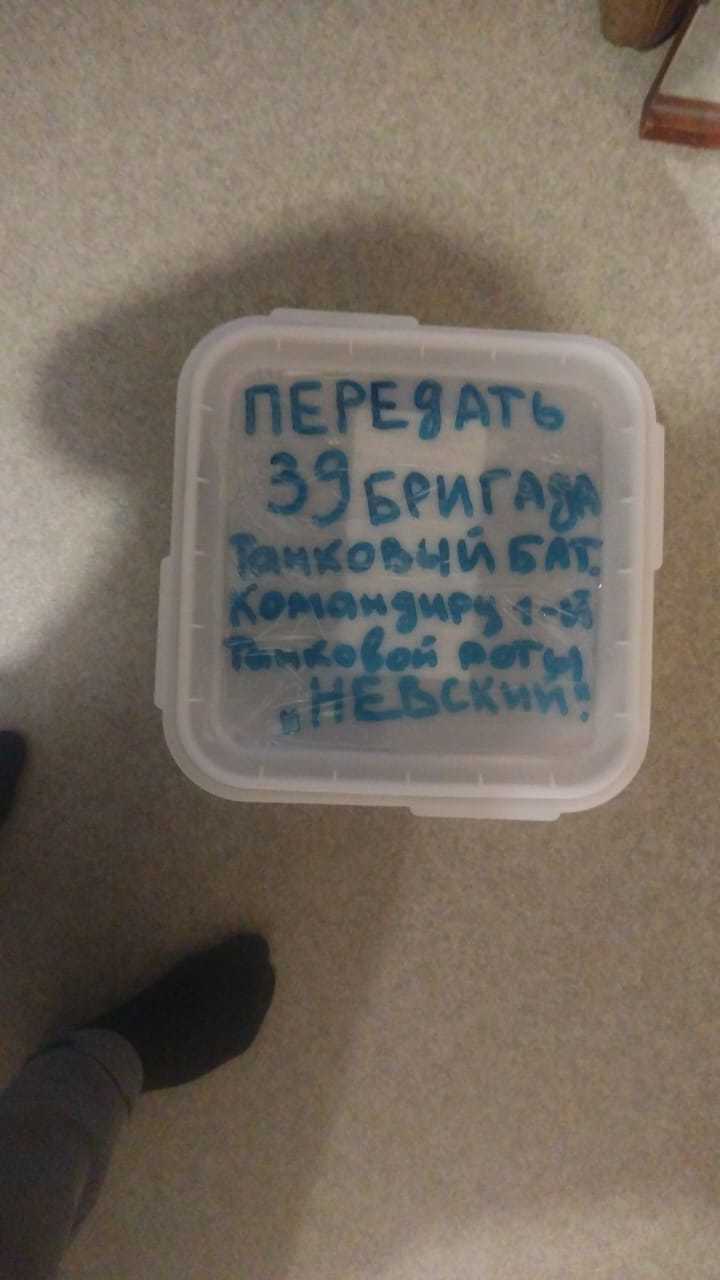 ПЕРЕДАТЬ
39 БРИГАДА
Танковый БАТ.
Командиру 1-ой
Танковой роты
„НЕВСКИЙ"